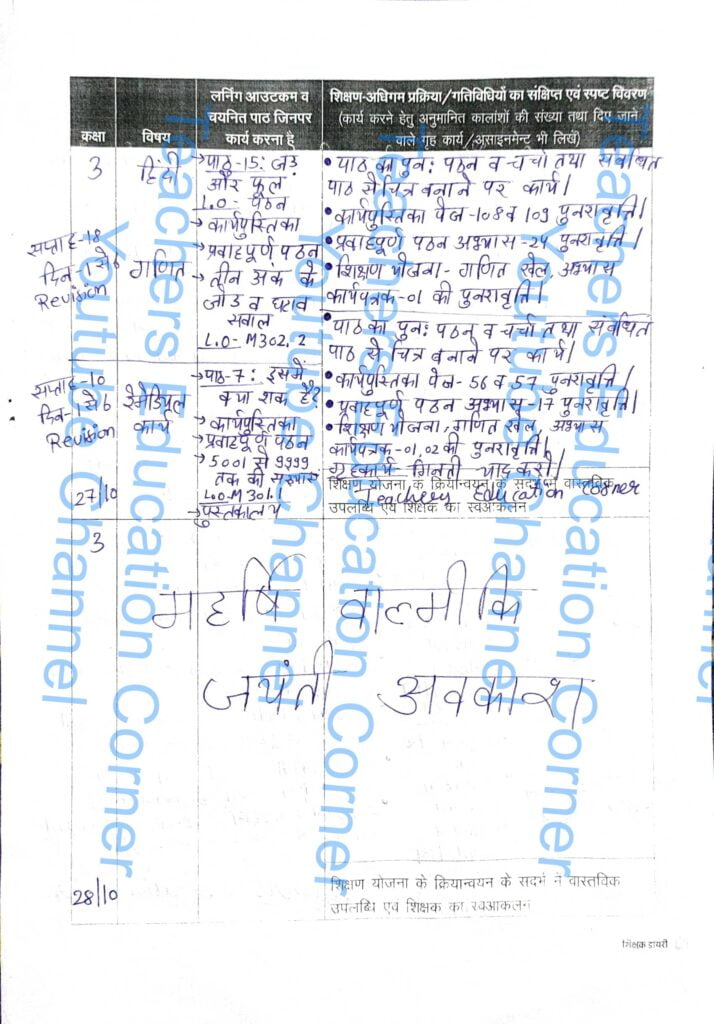 कक्षा
विषय
लर्निंग आउटकम व
चयनित पाठ जिनपर
कार्य करना है
शिक्षण-अधिगम प्रक्रिया/गतिविधियों का संक्षिप्त एवं स्पष्ट विवरण
(कार्य करने हेतु अनुमानित कालांशों की संख्या तथा दिए जाने
वाले गृह कार्य/असाइनमेन्ट भी लिखें)
3
हिंदी
→ पाठ-15: जड़
और फूल
L.O- पठन
→ कार्यपुस्तिका
→ प्रवाहपूर्ण पठन
• पाठ का पुन: पठन व चर्चा तथा संबंधित
पाठ से चित्र बनाने पर कार्य।
• कार्यपुस्तिका पेज-108 व 109 पुनरावृत्ति।
• प्रवाहपूर्ण पठन अभ्यास-24 पुनरावृत्ति।
सप्ताह-18
दिन-1 से 6
Revision
गणित
→ तीन अंक के
जोड़ व घटाव
सवाल
L.O- M302.2
• शिक्षण योजना- गणित खेल, अभ्यास
कार्यपत्रक-01 की पुनरावृत्ति।
• पाठ का पुन: पठन व चर्चा तथा संबंधित
पाठ से चित्र बनाने पर कार्य।
सप्ताह-10
दिन-1 से 6
Revision
रेमेडियल
कार्य
→ पाठ-7: इसमें
क्या शक है?
→ कार्यपुस्तिका
→ प्रवाहपूर्ण पठन
→ 5001 से 9999
तक की संख्याएं
L.O-M301.1
→ पुस्तकालय
• कार्यपुस्तिका पेज-56 व 57 पुनरावृत्ति।
• प्रवाहपूर्ण पठन अभ्यास-17 पुनरावृत्ति।
• शिक्षण योजना, गणित खेल, अभ्यास
कार्यपत्रक-01,02 की पुनरावृत्ति।
गृहकार्य- गिनती याद करो।
शिक्षण योजना के क्रियान्वयन के सदर्भ में वास्तविक
Teachers Education Corner
उपलब्धि एवं शिक्षक का स्वआकलन
27/10
3
महर्षि वाल्मीकि
जयंती अवकाश
28/10
शिक्षण योजना के क्रियान्वयन के सदर्भ में वास्तविक
उपलब्धि एवं शिक्षक का स्वआकलन
शिक्षक डायरी
Teachers Education Corner
Youtube Channel
Teachers Education Corner
Youtube Channel
Teachers Education Corner
Youtube Channel